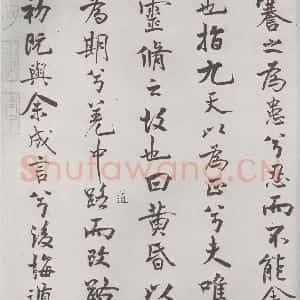 謇之為患兮忍而不能舍
也指九天以為正兮夫唯
靈脩之故也曰黃昏以
為期兮羌中路而改路
道
初既與余成言兮後悔遁
Shufawang.CN